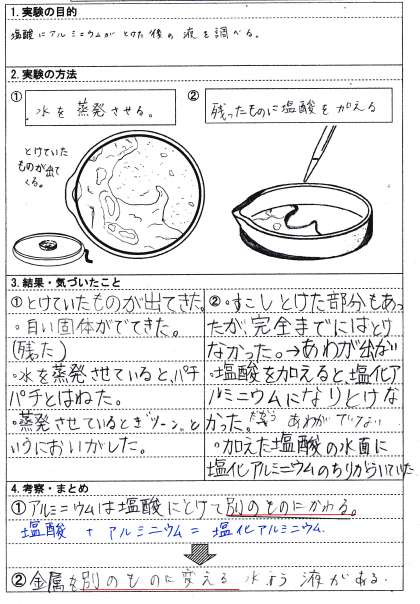 1.実験の目的
塩酸にアルミニウムがとけた後の液を調べる。
2.実験の方法
① 水を蒸発させる。
② 残ったものに塩酸を加える
とけていた
ものが出て
くる。
3.結果・気づいたこと
①とけていたものが出てきた。
・白い固体がでてきた。
(残った)
・水を蒸発させていると、パチ
パチとはねた。
・蒸発させているとき"ツーン"と
いうにおいがした。
②・すこしとけた部分もあっ
たが、完全までにはとけ
なかった。→あわが出ない
・塩酸を加えると、塩化ア
ルミニウムになりとけな
かった。だから あわがでない
・加えた塩酸の水面に
塩化アルミニウムのちりがういていた
4.考察・まとめ
①アルミニウムは塩酸にとけて別のものにかわる。
塩酸 + アルミニウム = 塩化アルミニウム.
②金属を別のものに変える水よう液がある.